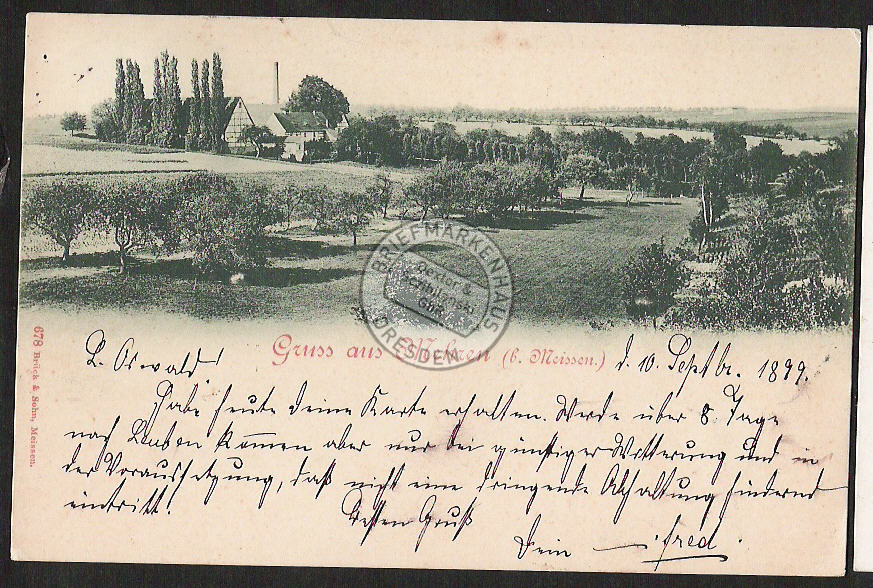 BRIEFMARKENHAUS
DRESDEN
Gruss aus Mohren (b. Meissen.)
d. 10 Septbr. 1899.
L. Oswald!
Habe heute deine Karte erhalten. Werde über 8 Tage
nach kommen aber nur bei günstiger Witterung und in
der Voraussetzung, daß nicht eine dringende Abhaltung hindernd
eintritt!
Besten Gruß
Dein
678 Brück & Sohn, Meissen.